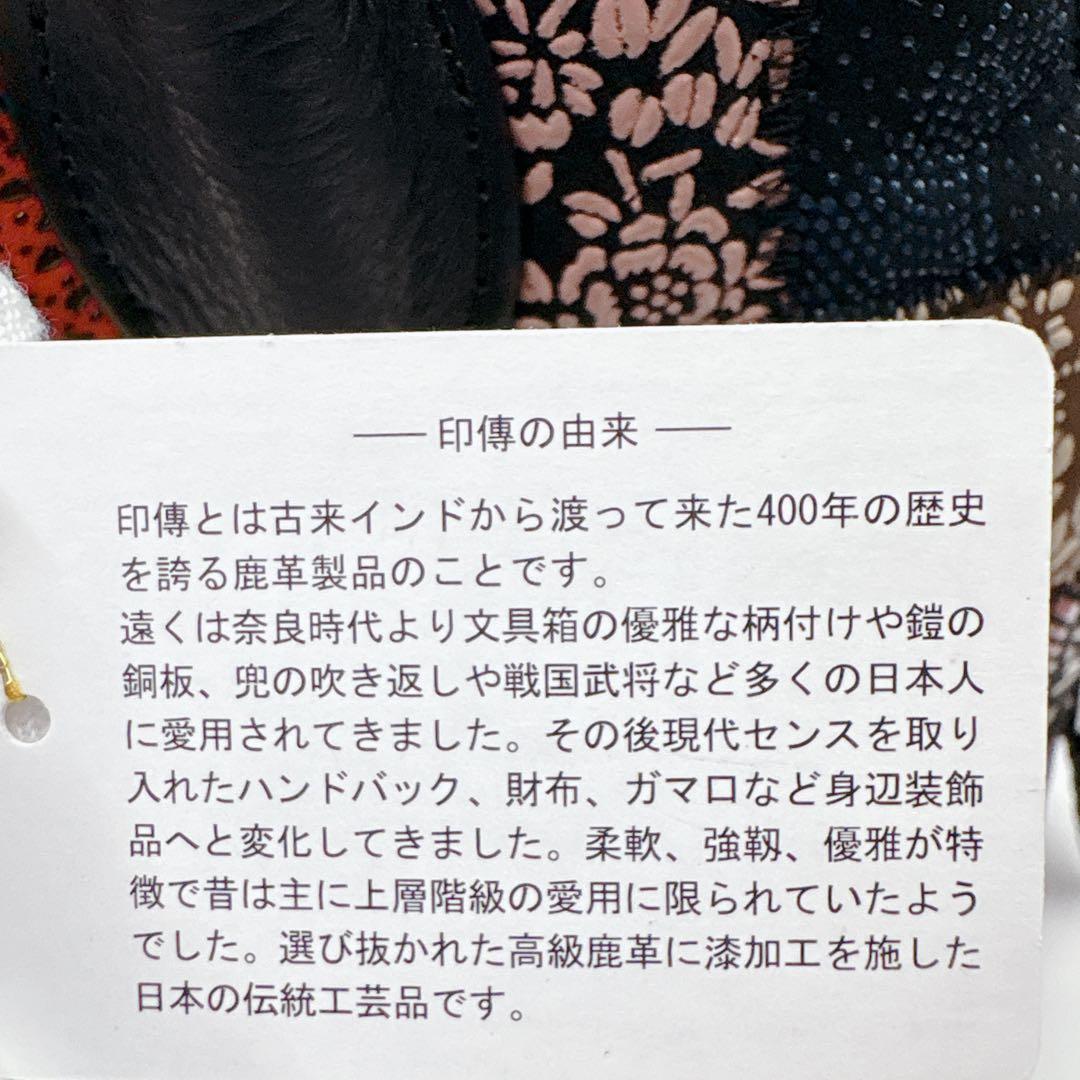 印傳の由来
印傳とは古来インドから渡って来た400年の歴史
を誇る鹿革製品のことです。
遠くは奈良時代より文具箱の優雅な柄付けや鎧の
銅板、兜の吹き返しや戦国武将など多くの日本人
に愛用されてきました。その後現代センスを取り
入れたハンドバック、財布、ガマロなど身辺装飾
品へと変化してきました。柔軟、強靱、優雅が特
徴で昔は主に上層階級の愛用に限られていたよう
でした。選び抜かれた高級鹿革に漆加工を施した
日本の伝統工芸品です。